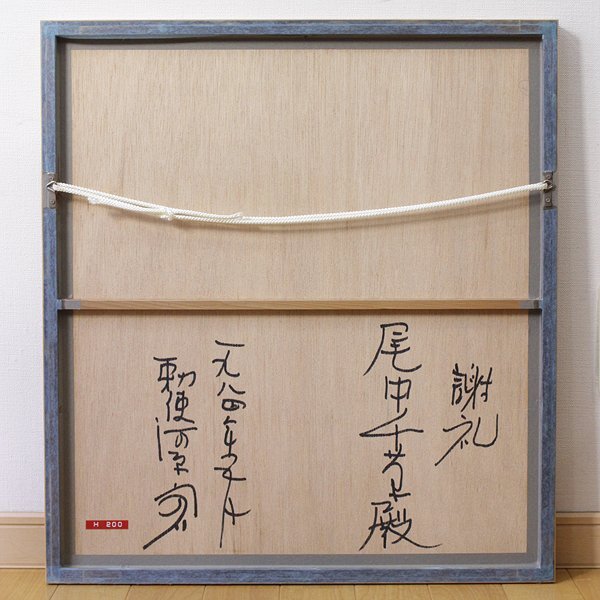 謝礼
尾中千芳殿
一九八四年五月
勅使河原宏
H 200